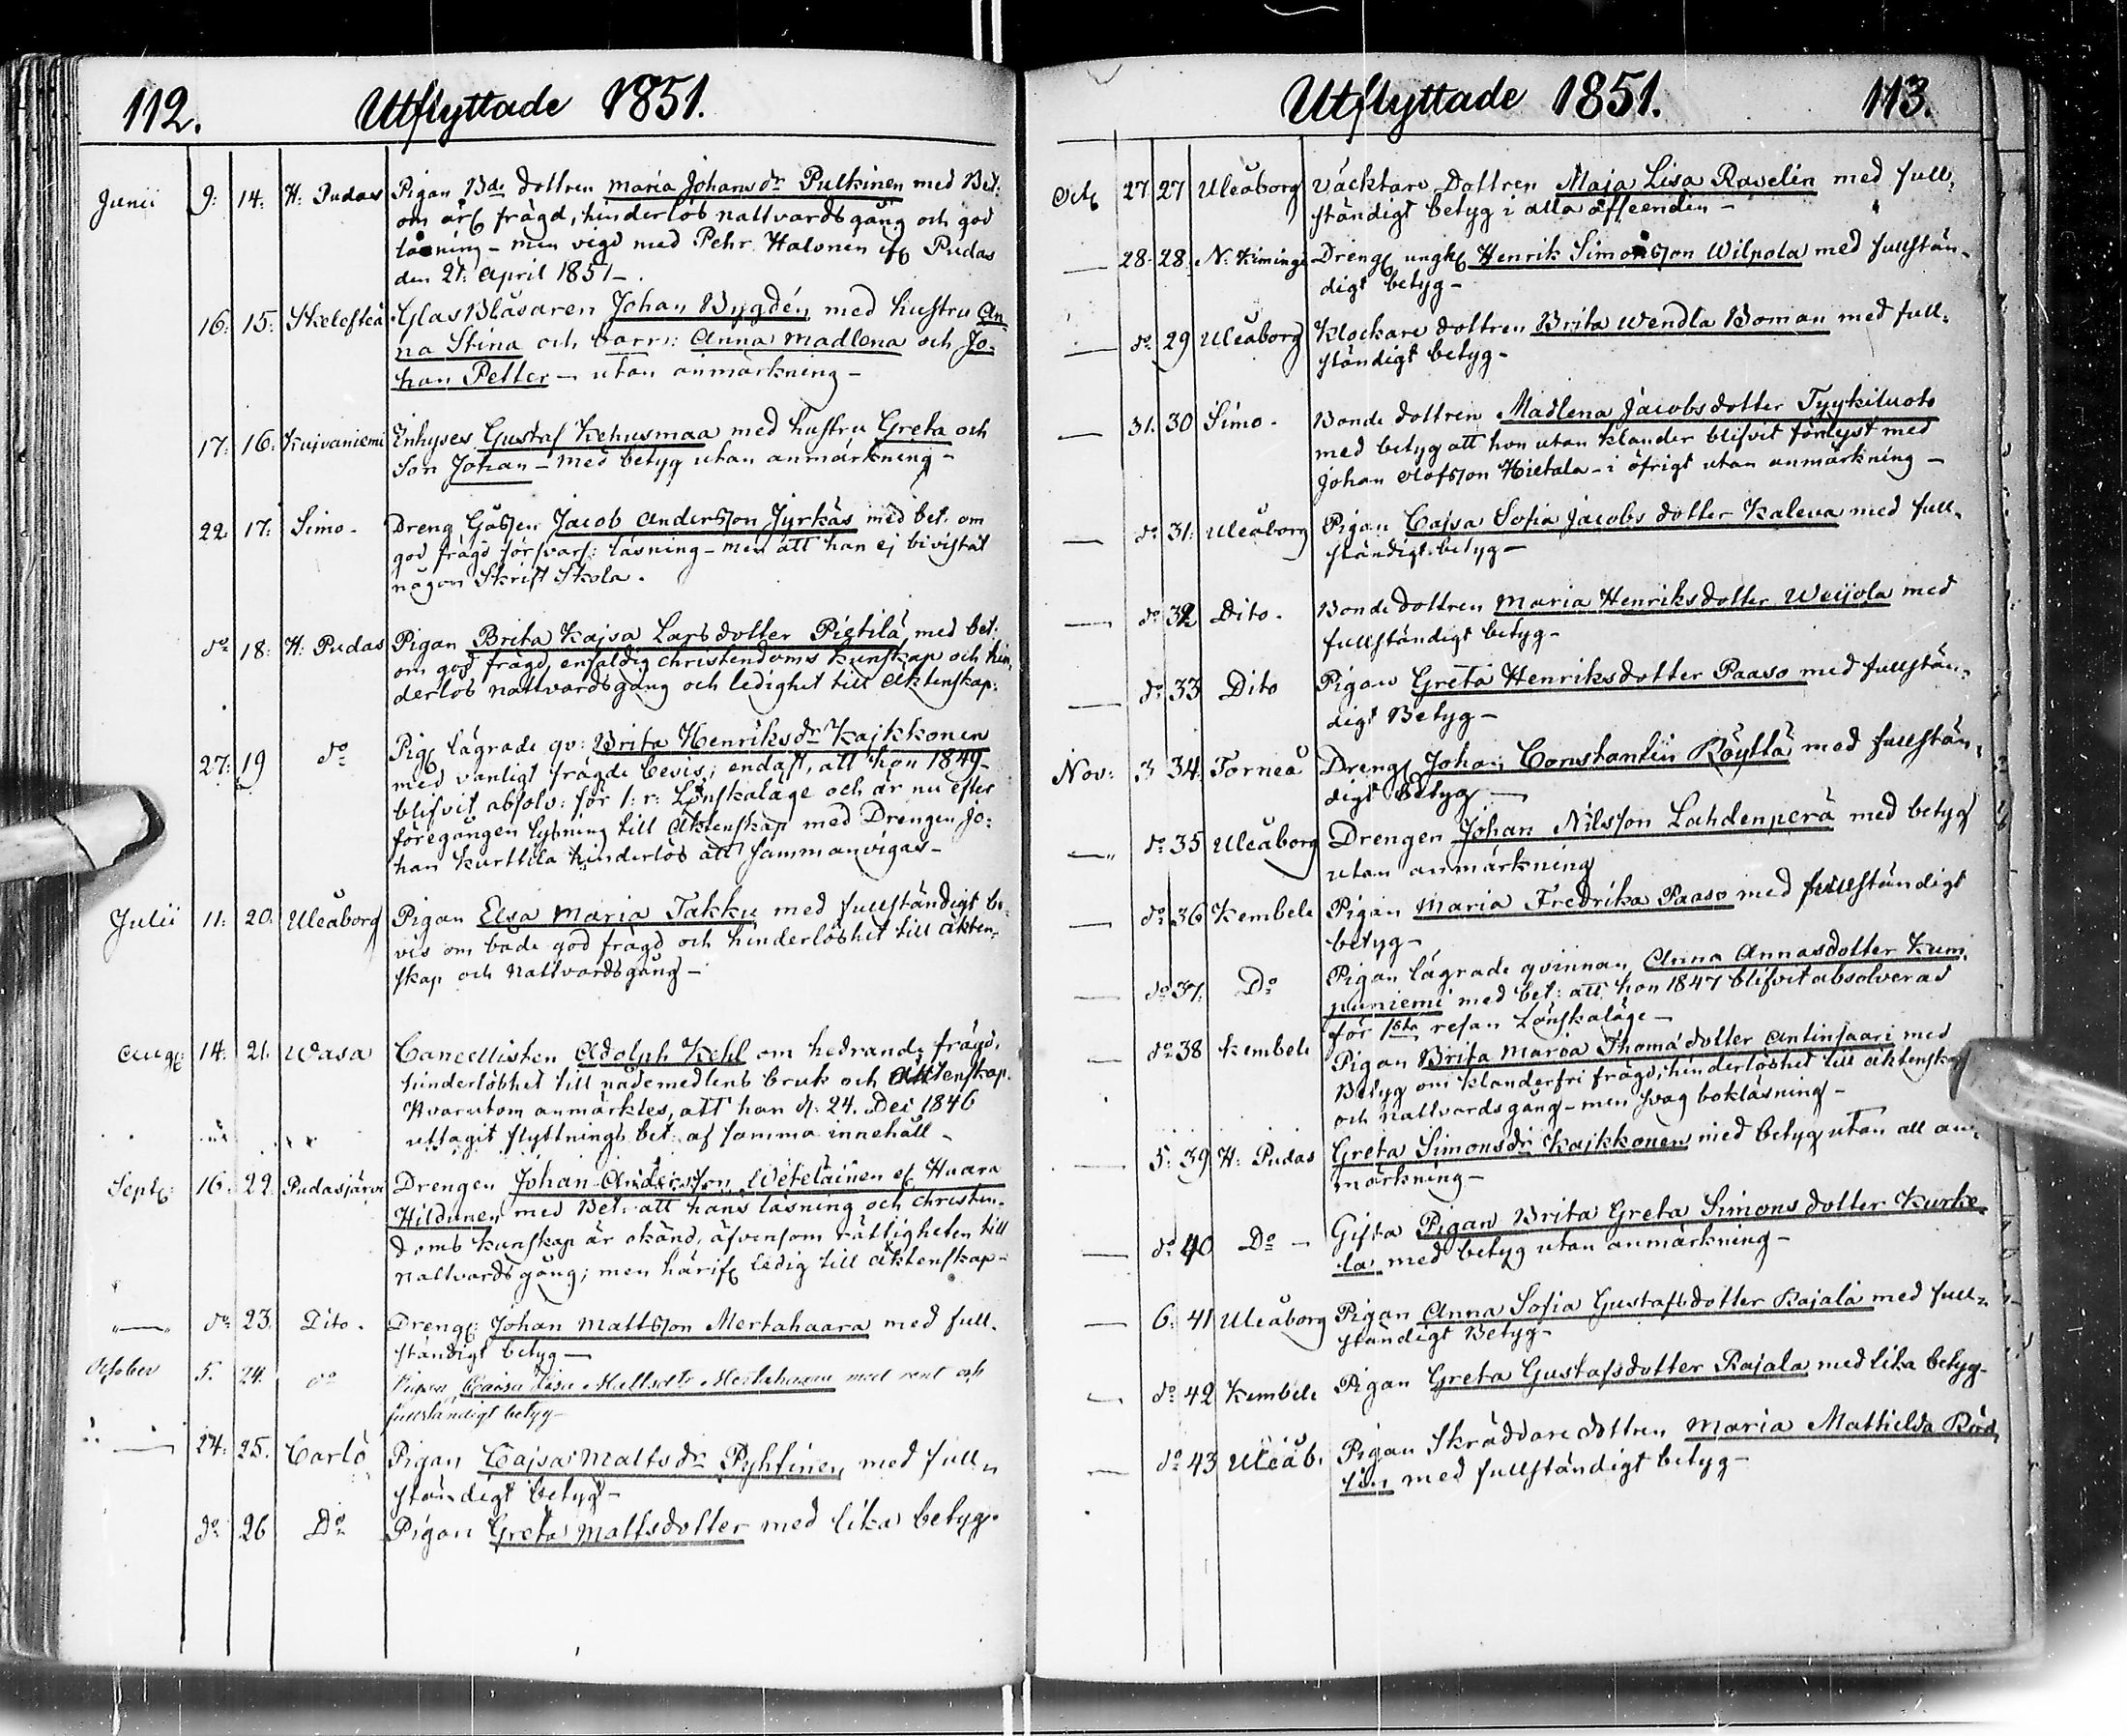 112. Utflyttade 1851.
Junii 9: 14: H: Pudas Pigan Bde dottren Maria Johansdr Pulkinen med Bet:
om ärl frägd, hinderlös nattvardsgång och god
läsning - men vigd med Pehr Halonen if Pudas
den 21: April 1851 -.
16: 15: Skelefteå GlasBlåsaren Johan Bygdén med hustru An-
na Stina och barn: Anna Madlena och Jo-
han Petter - utan anmärkning -
17: 16: Kuivaniemi Inhyses Gustaf Kehusmaa med hustru Greta och
Son Johan - med betyg utan anmärkning -
22 17: Simo - Dreng Gossen Jacob Andersson Jyrkäs med bet. om
god frägd försvarl: läsning - men att han ej bivistat
någon Skrift Skola.
do 18: H: Pudas Pigan Brita Kajsa Larsdotter Pietilä med bet.
om god frägd, enfaldig christendoms kunskap och hin-
derlös nattvardsgång och ledighet till Äktenskap:
27: 19 do Pig lägrade qv: Brita Henriksdr Kaikkonen
med vanligt frägde bevis; endast, att hon 1849-
blifvit absolv: för 1: r: Lönskaläge och är nu efter
föregången lysning till Äktenskap med Drengen Jo-
han Kurttila hinderlös att sammanvigas -
Julii 11: 20. Uleåborg Pigan Elsa Maria Takku med fullständigt be-
vis om både god frägd och hinderlöshet till äkten-
skap och Nattvardsgång -
Aug: 14: 21. Wasa Cancellisten Adolph Kehl om hedrande frägd,
hinderlöshet till nådemedlens bruk och Äktenskap.
Hvarutom anmärktes, att han d: 24. Dec 1846
uttagit flyttnings bet: af samma innehåll -
Sept: 16. 22. Pudasjärvi Drengen Johan Andersson Weteläinen el Huara
Hildunen med Bet: att hans läsning och christen-
doms kunskap är okänd, äfvensom rättigheten till
nattvardsgång; men härif ledig till Äktenskap -
do 23. Dito. Dreng: Johan Mattsson Mertahaara med full-
ständigt betyg -
October 5. 24. do Pigan Caisa Lisa Mattsdtr Mertahaara med rent och
fullständigt betyg -
24: 25. Carlö Pigan Cajsa Mattsdr Pyhtinen med full-
ständigt betyg -
do 26 Do Pigan Greta Mattsdotter med lika betyg.
Utflyttade 1851. 113.
Oct 27 27 Uleåborg Väcktare Dottren Maja Lisa Ravelin med full-
ständigt betyg i alla afseenden -
28. 28. N: Kiminge Dreng ungk Henrik Simonsson Wilpola med fullstän-
digt betyg -
do 29 Uleåborg Klockare dottren Brita Wendla Boman med full-
ständigt betyg -
31. 30 Simo - Bonde dottren Madlena Jacobsdotter Tyykiluoto
med betyg att hon utan klander blifvit förlyst med
Johan Olofsson Hietala - i öfrigt utan anmärkning -
do 31: Uleåborg Pigan Cajsa Sofia Jacobs dotter Kaleva med full-
ständigt betyg -
do 32 Dito. Bonde dottren Maria Henriksdotter Weijola med
fullständigt betyg -
do 33 Dito Pigan Greta Henriksdotter Paaso med fullstän-
digt Betyg -
Nov: 3 34. Torneå Dreng Johan Constantin Röyttä med fullstän-
digt Betyg -
do 35 Uleåborg Drengen Johan Nilsson Lahdenperä med betyg
utan anmärkning
do 36 Kembele Pigan Maria Fredrika Paaso med fullständigt
betyg -
do 37. Do Pigan lägrade qvinnan Anna Annasdotter Kum-
puniemi med bet: att hon 1847 blifvit absolverad
för 1sta resan Lönskaläge -
do 38 Kembele Pigan Brita Maria Thoma dotter Antinsaari med
Betyg om klanderfri frägd, hinderlöshet till äktenskap
och nattvardsgång - men svag bokläsning -
5: 39 H: Pudas Greta Simonsdr Kaikkonen med betyg utan all an-
märkning -
do 40 Do - Gifta Pigan Brita Greta Simons dotter Kurke-
la med betyg utan anmärkning -
6: 41 Uleåborg Pigan Anna Sofia Gustafsdotter Rajala med full-
ständigt Betyg -
do 42 Kembele Pigan Greta Gustafsdotter Rajala med lika betyg -
do 43 Uleåb. Pigan Skräddare dottren Maria Mathilda
med fullständigt betyg -